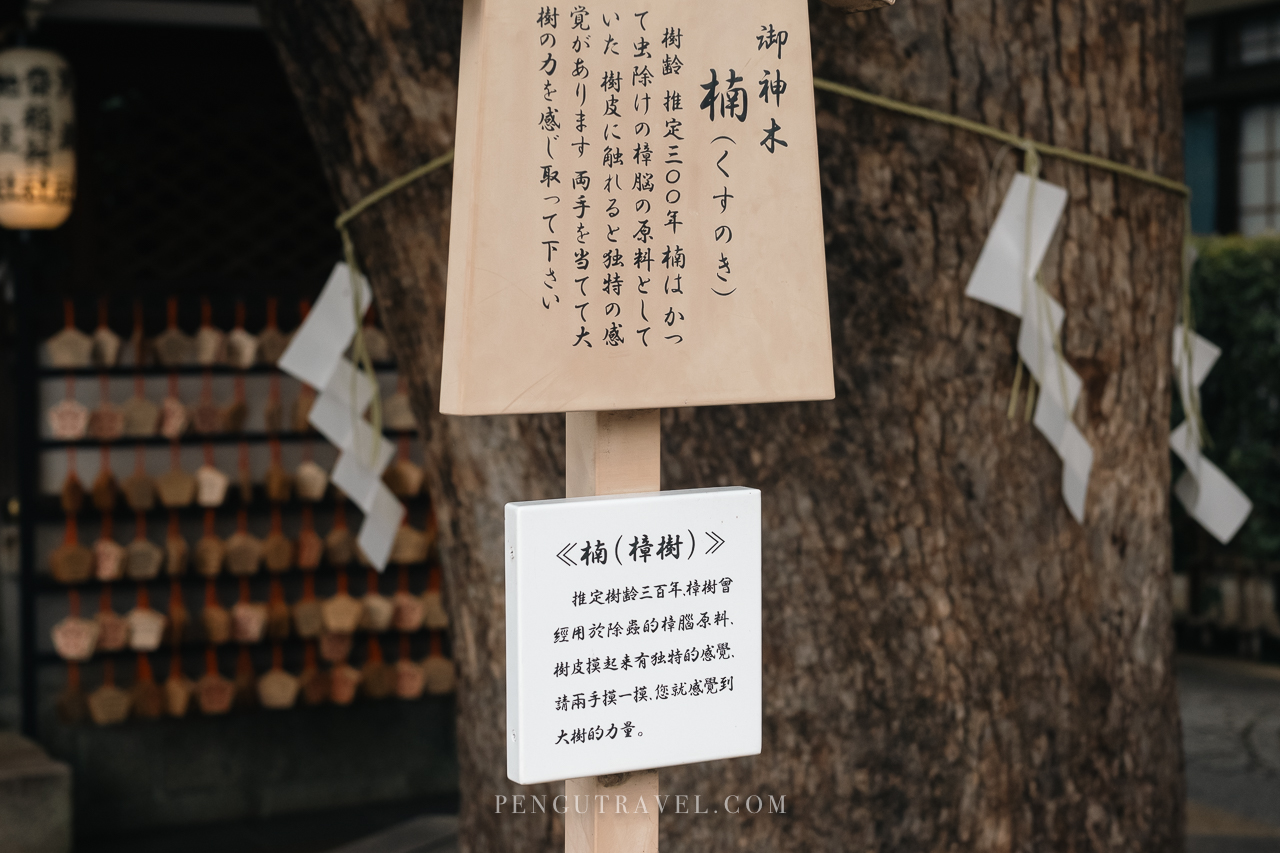 御神木
楠(くすのき)
樹齢 推定三〇〇年 楠は かつ
て虫除けの樟脳の原料として
いた 樹皮に触れると独特の感
覚があります 両手を当てて大
樹の力を感じ取って下さい
《楠(樟樹)》
推定樹齡三百年,樟樹曾
經用於除蟲的樟腦原料,
樹皮摸起来有独特的感覺,
請兩手摸一摸,您就感覺到
大樹的力量。
PENGUTRAVEL.COM